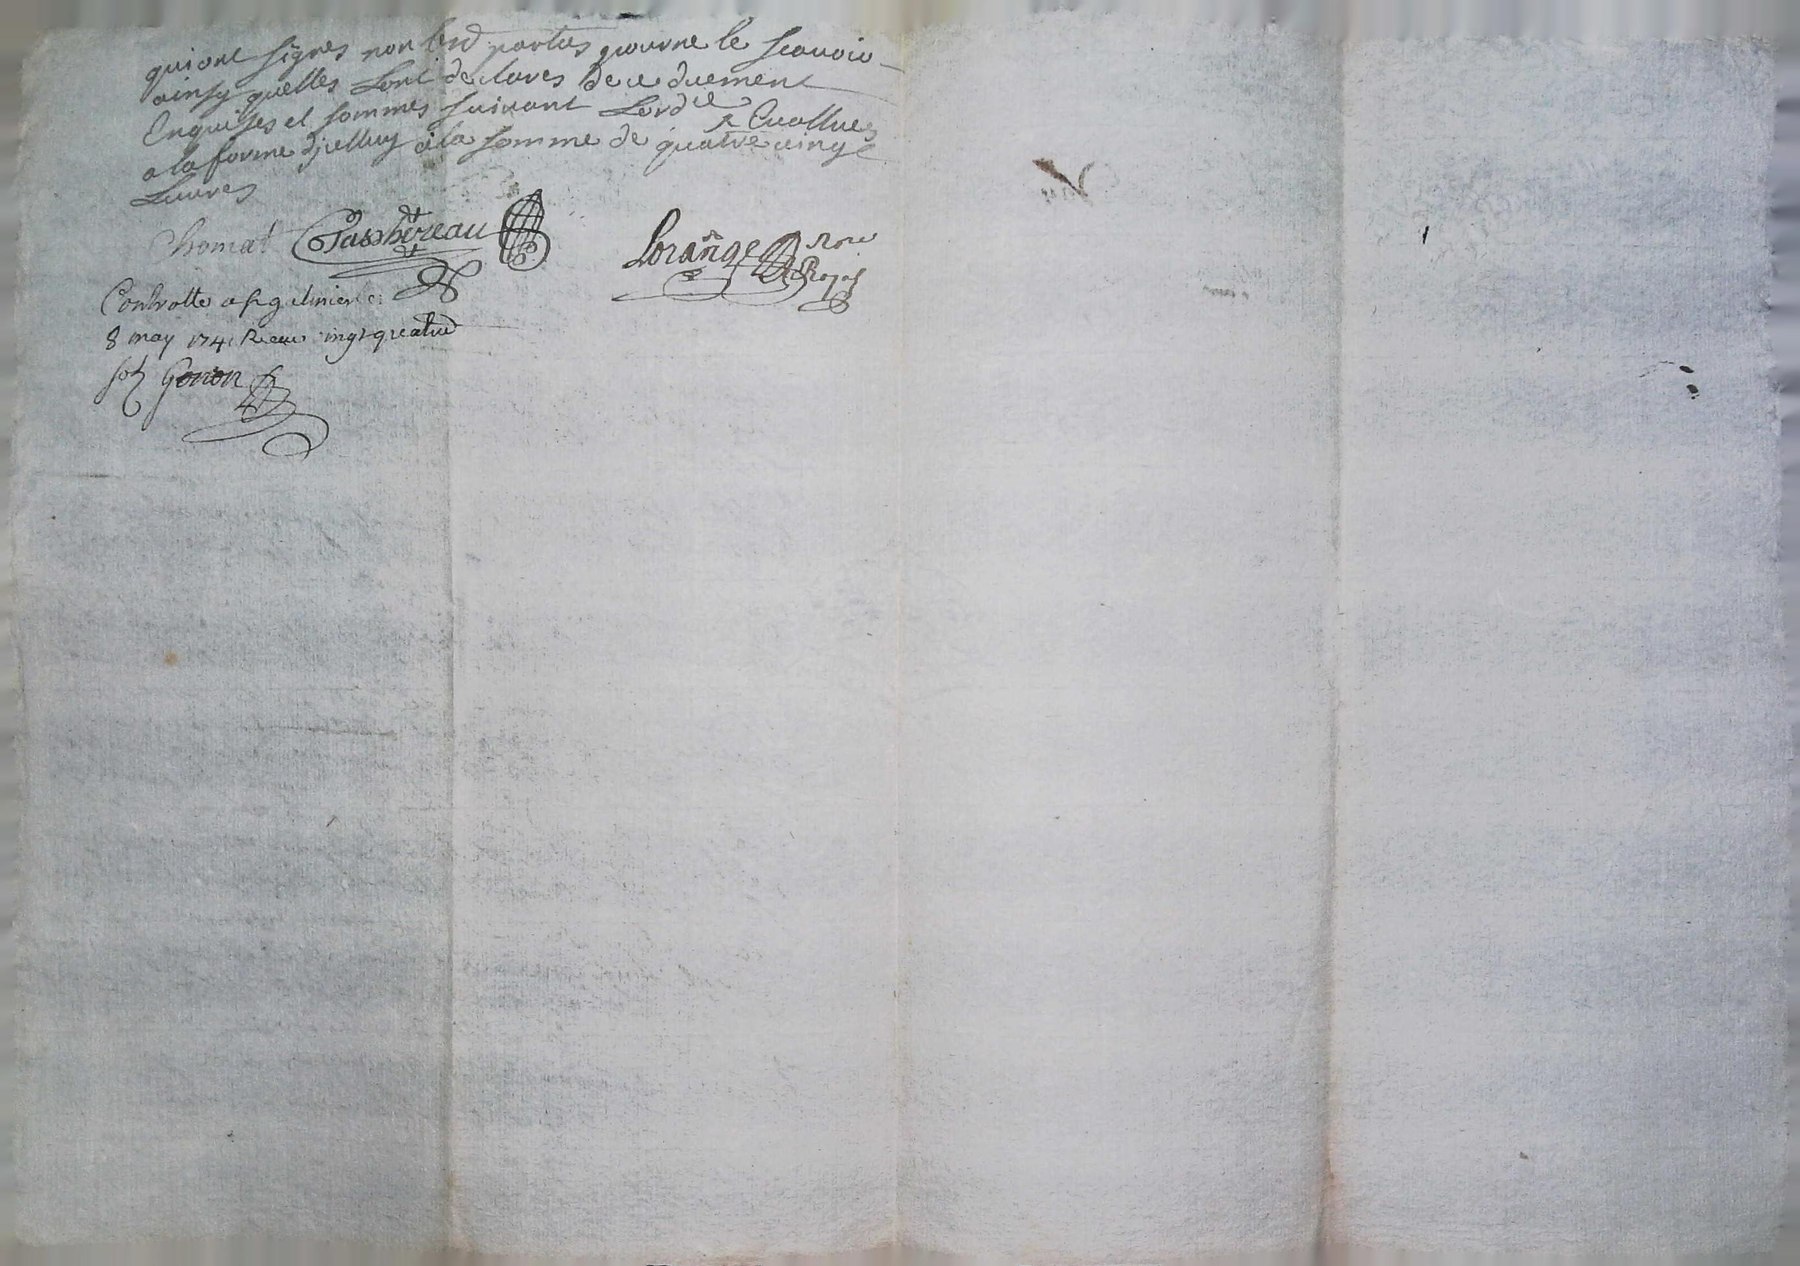 qui ont signes non lesd parties pour ne le scauoir
ainsy quelles lont declares de ce duement
Enquises et sommes suiuant Lordce Euallues
a la forme dicelluy a la somme de quatre uingt
Liures
Chomat Paschereau
Lorange Nore
Royal
Controlle a
8 may 1741 Receu uingt quatre
sols Gonon